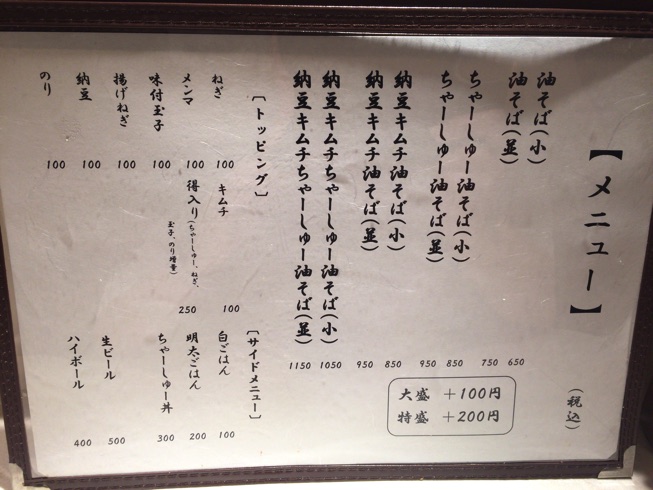 【メニュー】
(税込)
油そば(小) 650
油そば(並) 750
ちゃーしゅー油そば(小) 850
ちゃーしゅー油そば(並) 950
納豆キムチ油そば(小) 850
納豆キムチ油そば(並) 950
納豆キムチちゃーしゅー油そば(小) 1050
納豆キムチちゃーしゅー油そば(並) 1150
大盛 +100円
特盛 +200円
[トッピング]
ねぎ 100
メンマ 100
味付玉子 100
揚げねぎ 100
納豆 100
のり 100
キムチ 100
得入り(ちゃーしゅー、ねぎ、
玉子、のり増量) 250
[サイドメニュー]
白ごはん 100
明太ごはん 200
ちゃーしゅー丼 300
生ビール 500
ハイボール 400